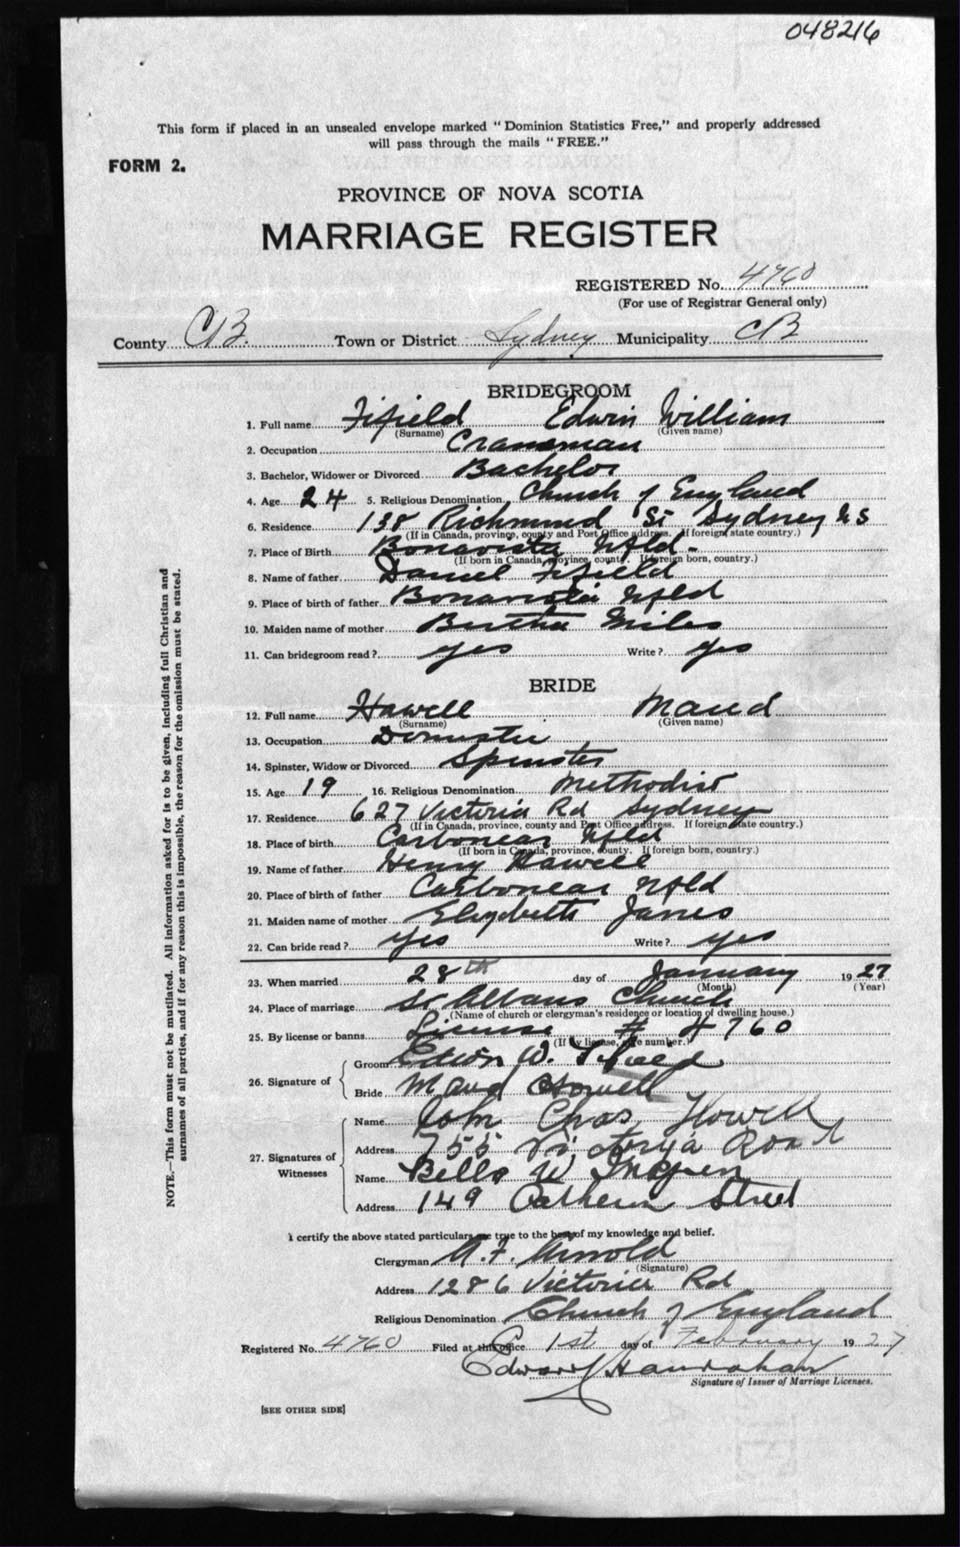 048216
This form if placed in an unsealed envelope marked "Dominion Statistics Free," and properly addressed
will pass through the mails "FREE."
FORM 2.
PROVINCE OF NOVA SCOTIA
MARRIAGE REGISTER
REGISTERED No. 4760
(For use of Registrar General only)
County CB. Town or District Sydney Municipality CB
BRIDEGROOM
1. Full name Fifield Edwin William
(Surname) (Given name)
2. Occupation Craneman
3. Bachelor, Widower or Divorced Bachelor
4. Age 24 5. Religious Denomination Church of England
6. Residence 138 Richmund St Sydney NS
(If in Canada, province, county and Post Office address. If foreign state country.)
7. Place of Birth Bonavista Nfld-
(If born in Canada, province, county. If foreign born, country.)
8. Name of father Daniel Fifield
9. Place of birth of father Bonavista Nfld
10. Maiden name of mother Bertha Miles
11. Can bridegroom read? yes Write? yes
BRIDE
12. Full name Howell Maud
(Surname) (Given name)
13. Occupation Domestic
14. Spinster, Widow or Divorced Spinster
15. Age 19 16. Religious Denomination Methodist
17. Residence 627 Victoria Rd Sydney
(If in Canada, province, county and Post Office address. If foreign state country.)
18. Place of birth Carbonear Nfld
(If born in Canada, province, county. If foreign born, country.)
19. Name of father Henry Howell
20. Place of birth of father Carbonear Nfld
21. Maiden name of mother Elizabeth Janes
22. Can bride read? yes Write? yes
23. When married 28th day of January 1927
(Month) (Year)
24. Place of marriage St Albans Church
(Name of church or clergyman's residence or location of dwelling house.)
25. By license or banns License # 4760
(If by license, give number.)
26. Signature of
Groom Edwin W. Fifield
Bride Maud Howell
27. Signatures of Witnesses
Name John Chas Howell
Address 755 Victorya Road
Name Bella W
Address 149 Street
I certify the above stated particulars are true to the best of my knowledge and belief.
Clergyman A. F. Arnold
(Signature)
Address 1286 Victoria Rd
Religious Denomination Church of England
Registered No. 4760 Filed at this office 1st day of February 1927
Edward Hanrahan
Signature of Issuer of Marriage Licenses.
[SEE OTHER SIDE]
NOTE.—This form must not be mutilated. All information asked for is to be given, including full Christian and
surnames of all parties, and if for any reason this is impossible, the reason for the omission must be stated.